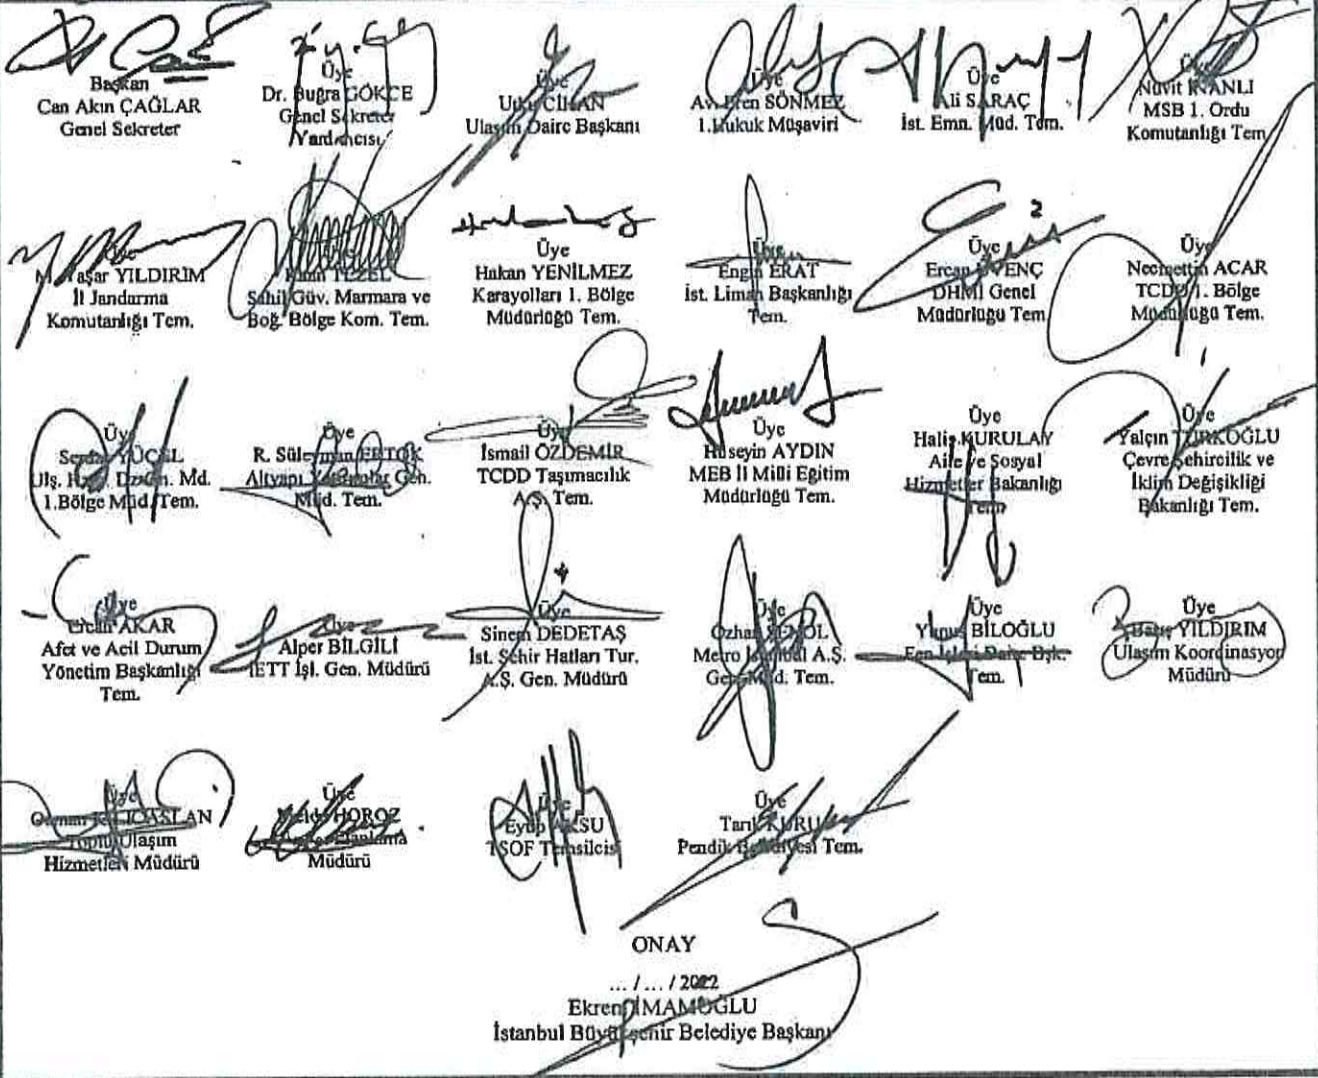 Başkan
Can Akın ÇAĞLAR
Genel Sekreter
Üye
Dr. Buğra GÖKÇE
Genel Sekreter
Yardımcısı
Üye
Utku CİHAN
Ulaşım Daire Başkanı
Üye
Av. Eren SÖNMEZ
1.Hukuk Müşaviri
Üye
Ali SARAÇ
İst. Emn. Müd. Tem.
Üye
MSB 1. Ordu
Komutanlığı Tem.
YILDIRIM
İl Jandarma
Komutanlığı Tem.
TEZEL
Sahil Güv. Marmara ve
Boğ. Bölge Kom. Tem.
Üye
Hakan YENİLMEZ
Karayolları 1. Bölge
Müdürlüğü Tem.
Üye
Engin ERAT
İst. Liman Başkanlığı
Tem.
Üye
Ercan
DHMİ Genel
Müdürlüğü Tem
Üye
Necmettin ACAR
TCDD 1. Bölge
Müdürlüğü Tem.
Üye
Serdar YÜCEL
Md.
1.Bölge Müd. Tem.
Üye
R. Süleyman ERTOK
Altyapı Gen.
Müd. Tem.
Üye
İsmail ÖZDEMİR
TCDD Taşımacılık
A.Ş. Tem.
Üye
Hüseyin AYDIN
MEB İl Milli Eğitim
Müdürlüğü Tem.
Üye
Halis KURULAY
Aile ve Sosyal
Hizmetler Bakanlığı
Tem
Üye
Yalçın TÜRKOĞLU
Çevre Şehircilik ve
İklim Değişikliği
Bakanlığı Tem.
Üye
AKAR
Afet ve Acil Durum
Yönetim Başkanlığı
Tem.
Üye
Alper BİLGİLİ
İETT İşl. Gen. Müdürü
Üye
Sinem DEDETAŞ
İst. Şehir Hatları Tur.
A.Ş. Gen. Müdürü
Üye
Özhan
Metro İstanbul A.Ş.
Gen. Müd. Tem.
Üye
Yunus BİLOĞLU
Fen İşleri Daire Bşk.
Tem.
Üye
Barış YILDIRIM
Ulaşım Koordinasyon
Müdürü
Üye
Toplu Ulaşım
Hizmetleri Müdürü
Üye
HOROZ
Müdürü
Üye
Eyüp AKSU
TŞOF Temsilcisi
Üye
Tarık KURU
Pendik Belediyesi Tem.
ONAY
... / ... / 2022
Ekrem İMAMOĞLU
İstanbul Büyükşehir Belediye Başkanı